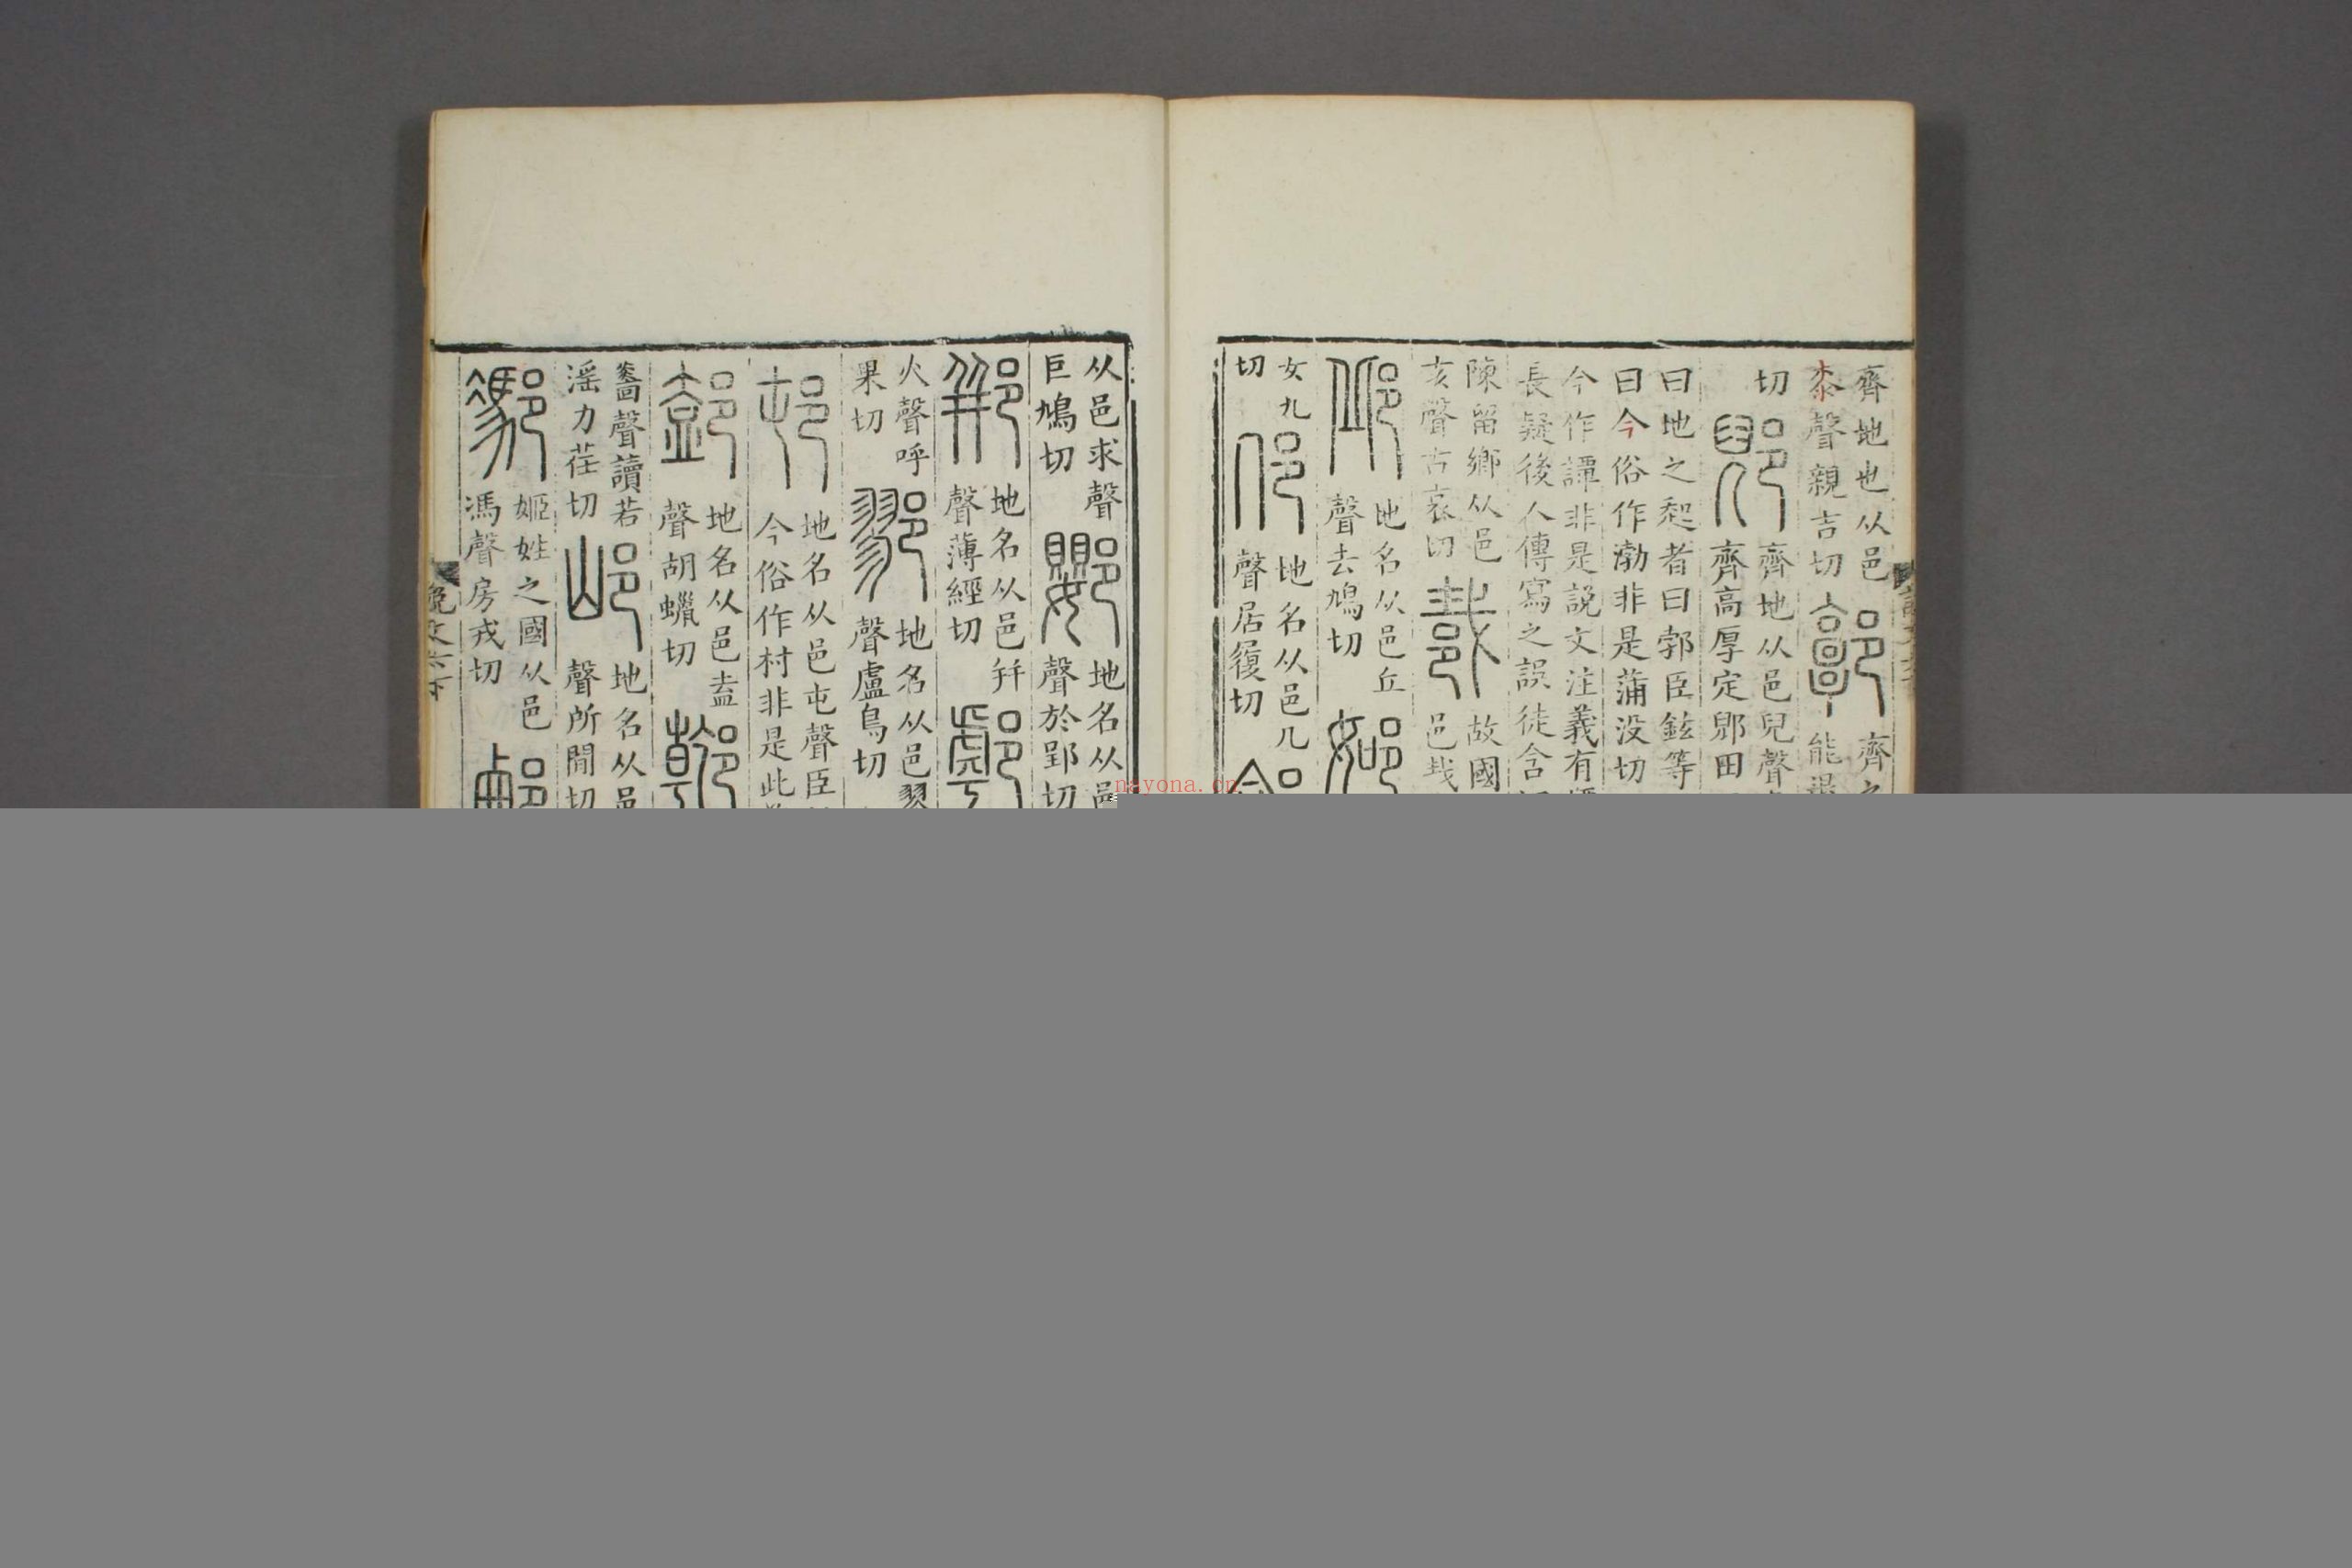 齊地也从邑
桼聲親吉切
郭
齊之
切
郳
齊地从邑兒聲
齊高厚定郳田
曰地之起者曰郣臣鉉等
曰今俗作渤非是蒲没切
今作譚非是説文注義有
長疑後人傳寫之誤徒含
陳留鄉从邑
亥聲古哀切
故國
邑𢦏
邱
地名从邑丘
聲去鳩切
女九
切
地名从邑几
聲居履切
从邑求聲
巨鳩切
地名从邑
聲於郢切
郱
地名从邑幷
聲薄經切
火聲呼
果切
鄝
地名从邑翏
聲盧鳥切
邨
地名从邑屯聲臣
今俗作村非是此
地名从邑盍
聲胡蠟切
聲讀若
淫力荏切
邖
地名从邑
聲所間切
姬姓之國从邑
馮聲房戎切
說文六下
nayona.cn